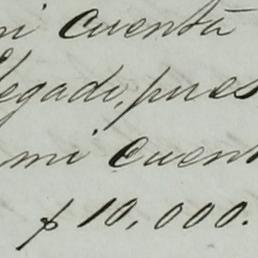 mi cuenta
legado, pues
mi cuent
$ 10,000.